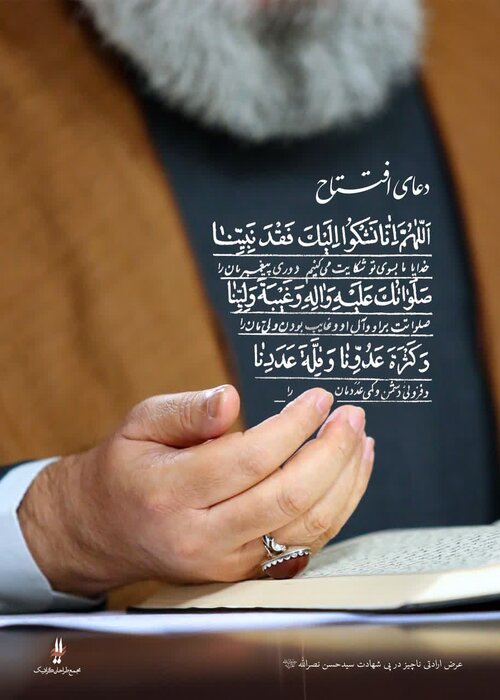 دعای افتتاح
اَللّهُمَّ اِنّا نَشْكُوا اِلَيْكَ فَقْدَ نَبِيِّنا
خدایا ما بسوی تو شکایت می‌کنیم دوری پیغمبرمان را
صَلَواتُكَ عَلَيْهِ وَالِهِ وَغَيْبَةَ وَلِيِّنا
صلواتت بر او و آل او و غایب بودن ولی‌مان را
وَكَثْرَةَ عَدُوِّنا وَقِلَّةَ عَدَدِنا
و فزونی دشمن و کمی عددمان را
عرض ارادتی ناچیز در پی شهادت سیدحسن نصرالله
مجمع طراحان گرافیک